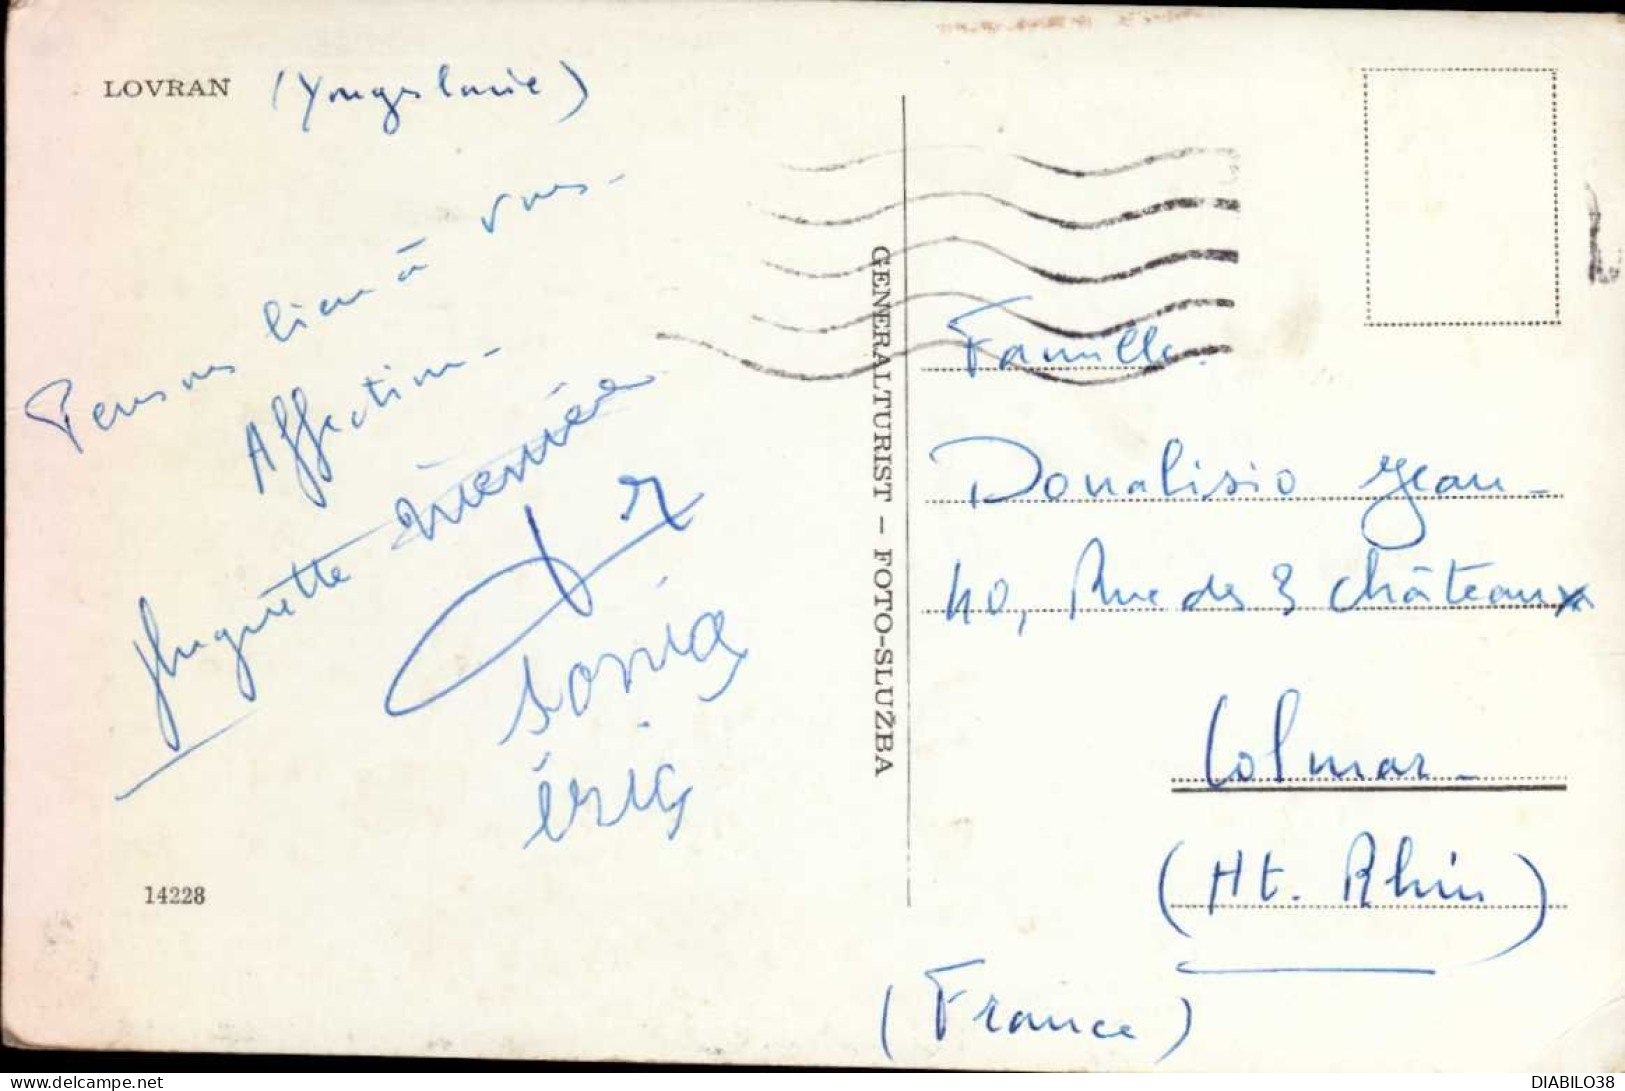 LOVRAN (Yougslavie)
Pensons bien à vous -
Affection -
Huguette
Sonia
éric
14228
GENERALTURIST – FOTO-SLUŽBA
Famille
Donalisio Jean -
40, Rue des 3 Châteaux
Colmar -
(Ht. Rhin)
(France)
DIABILO38